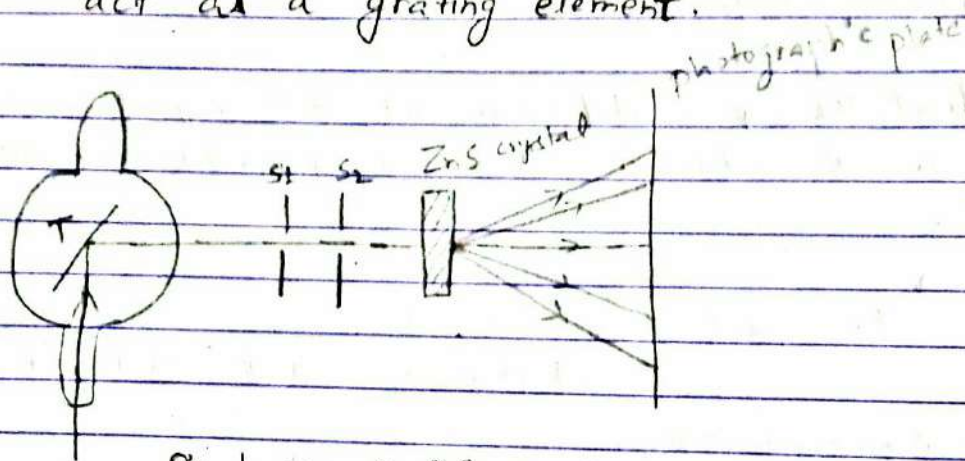 act as a grating element.
photographic plate
ZnS crystal
S1 S2
T